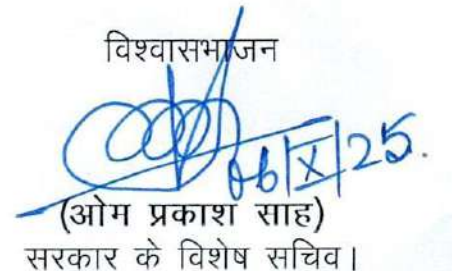 विश्वासभाजन
06|X|25.
(ओम प्रकाश साह)
सरकार के विशेष सचिव।